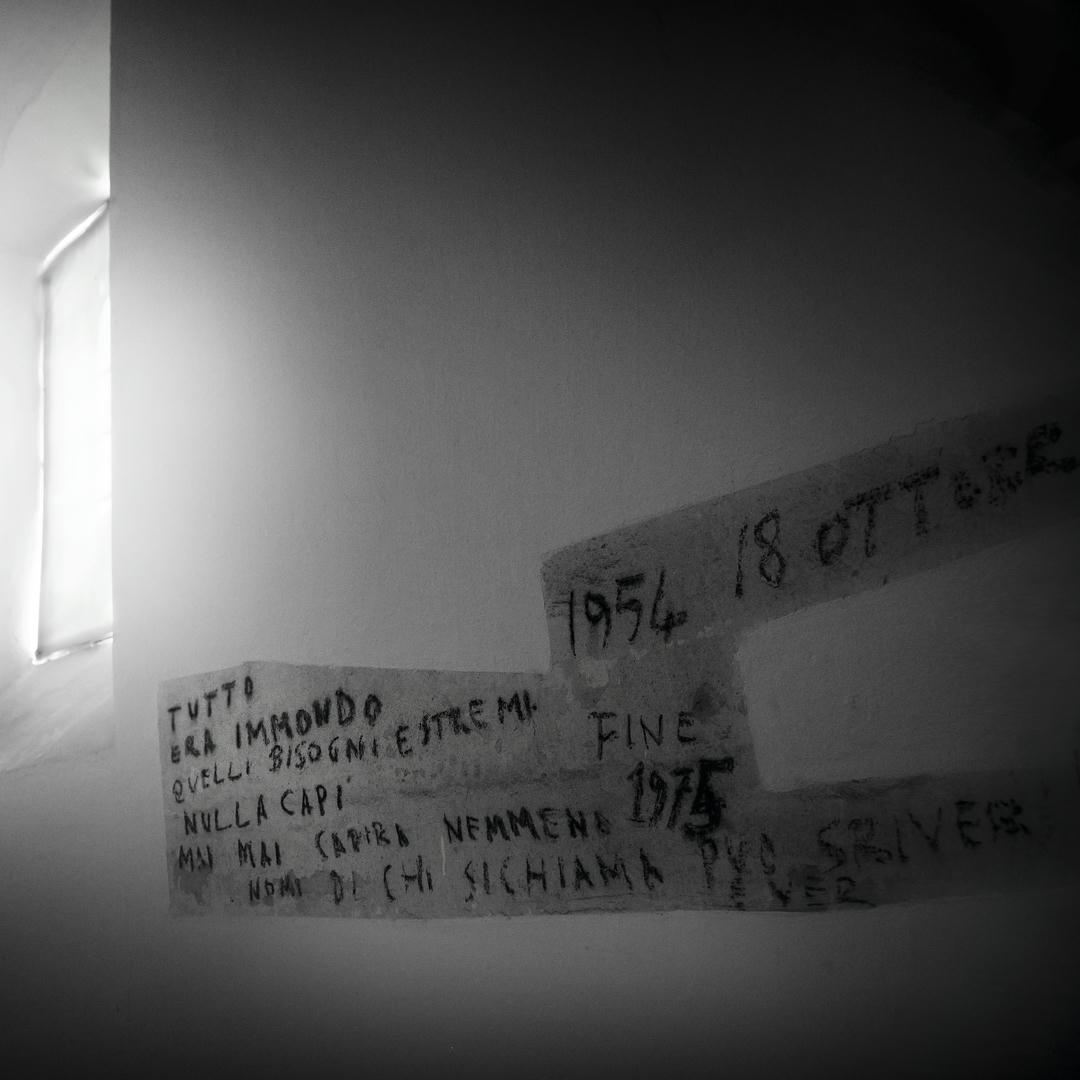 1954 18 OTTOBRE
TUTTO
ERA IMMONDO
QUELLI BISOGNI ESTREMI
NULLA CAPI'
MAI CAPIRA NEMMENO
NOMI DI CHI SICHIAMA PUO SRIVER
IVER
FINE
1975